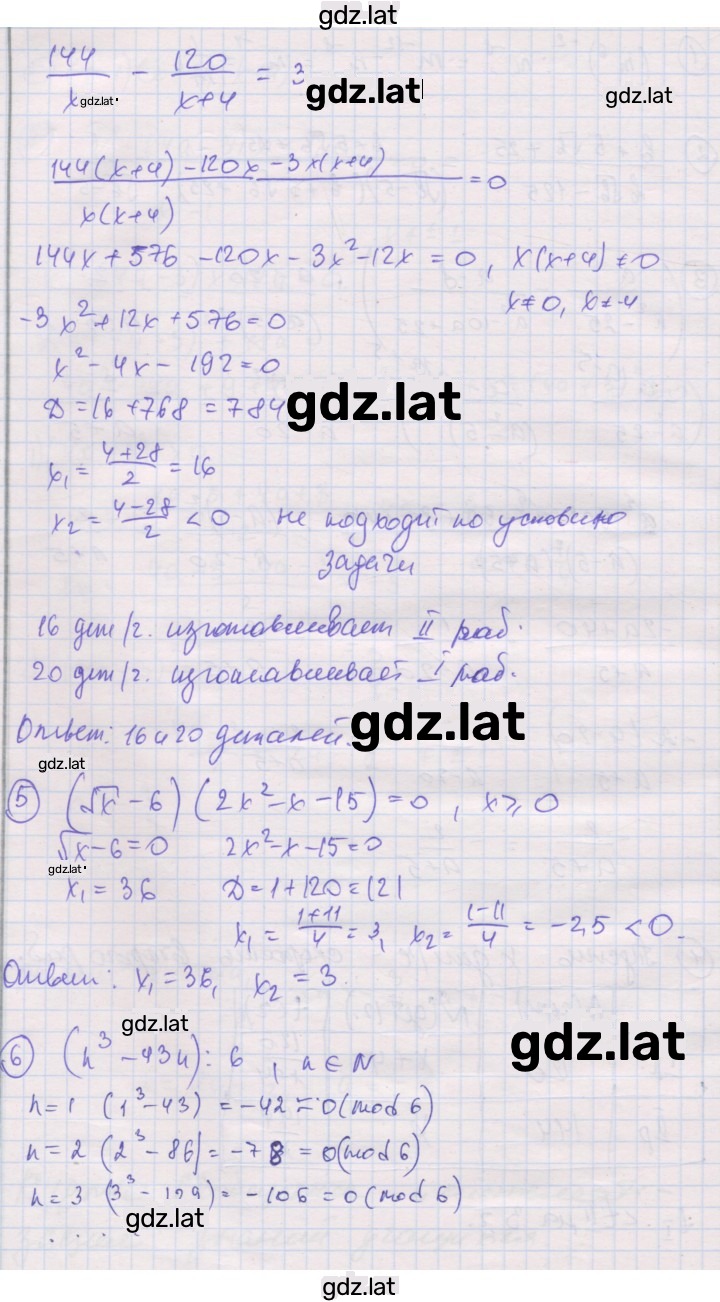 gdz.lat
144/x - 120/(x+4) = 3
gdz.lat
gdz.lat
gdz.lat
(144(x+4) - 120x - 3x(x+4))/(x(x+4)) = 0
144x + 576 - 120x - 3x² - 12x = 0, x(x+4) ≠ 0
x ≠ 0, x ≠ -4
-3x² + 12x + 576 = 0
x² - 4x - 192 = 0
D = 16 + 768 = 784
gdz.lat
x₁ = (4+28)/2 = 16
x₂ = (4-28)/2 < 0 не подходит по условию
задачи
16 дет/ч. изготавливает II раб.
20 дет/ч. изготавливает I раб.
Ответ: 16 и 20 деталей.
gdz.lat
gdz.lat
5 (√x - 6)(2x² - x - 15) = 0, x ≥ 0
√x - 6 = 0 2x² - x - 15 = 0
gdz.lat
x₁ = 36 D = 1 + 120 = 121
x₁ = (1+11)/4 = 3, x₂ = (1-11)/4 = -2,5 < 0.
Ответ: x₁ = 36, x₂ = 3.
gdz.lat
gdz.lat
6 (n³ - 43n) : 6, n ∈ N
n = 1 (1³ - 43) = -42 = 0 (mod 6)
n = 2 (2³ - 86) = -78 = 0 (mod 6)
n = 3 (3³ - 129) = -106 = 0 (mod 6)
gdz.lat
. . . .
gdz.lat